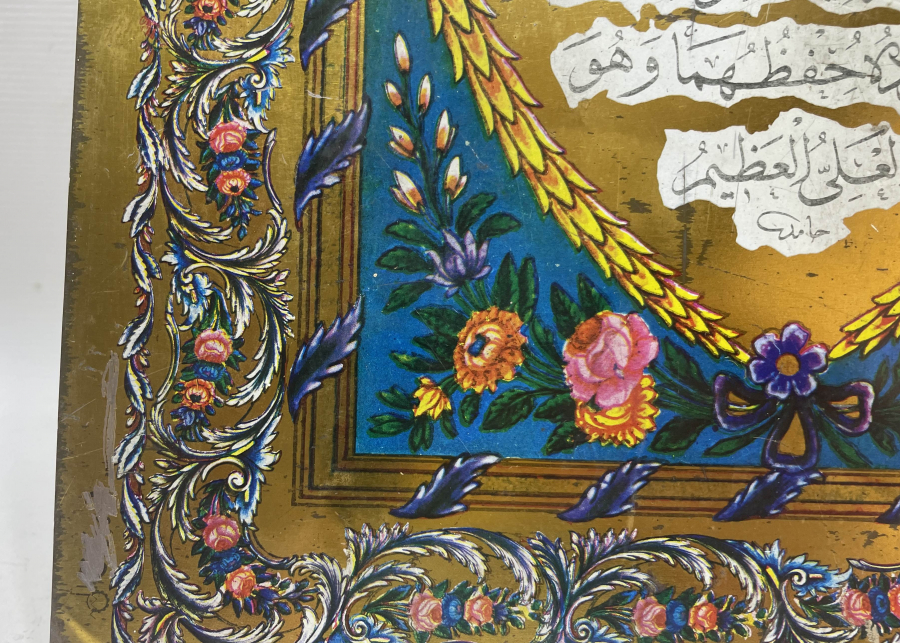 حِفْظُهُمَا وَهُوَ
الْعَلِيُّ الْعَظِيمُ
حامد